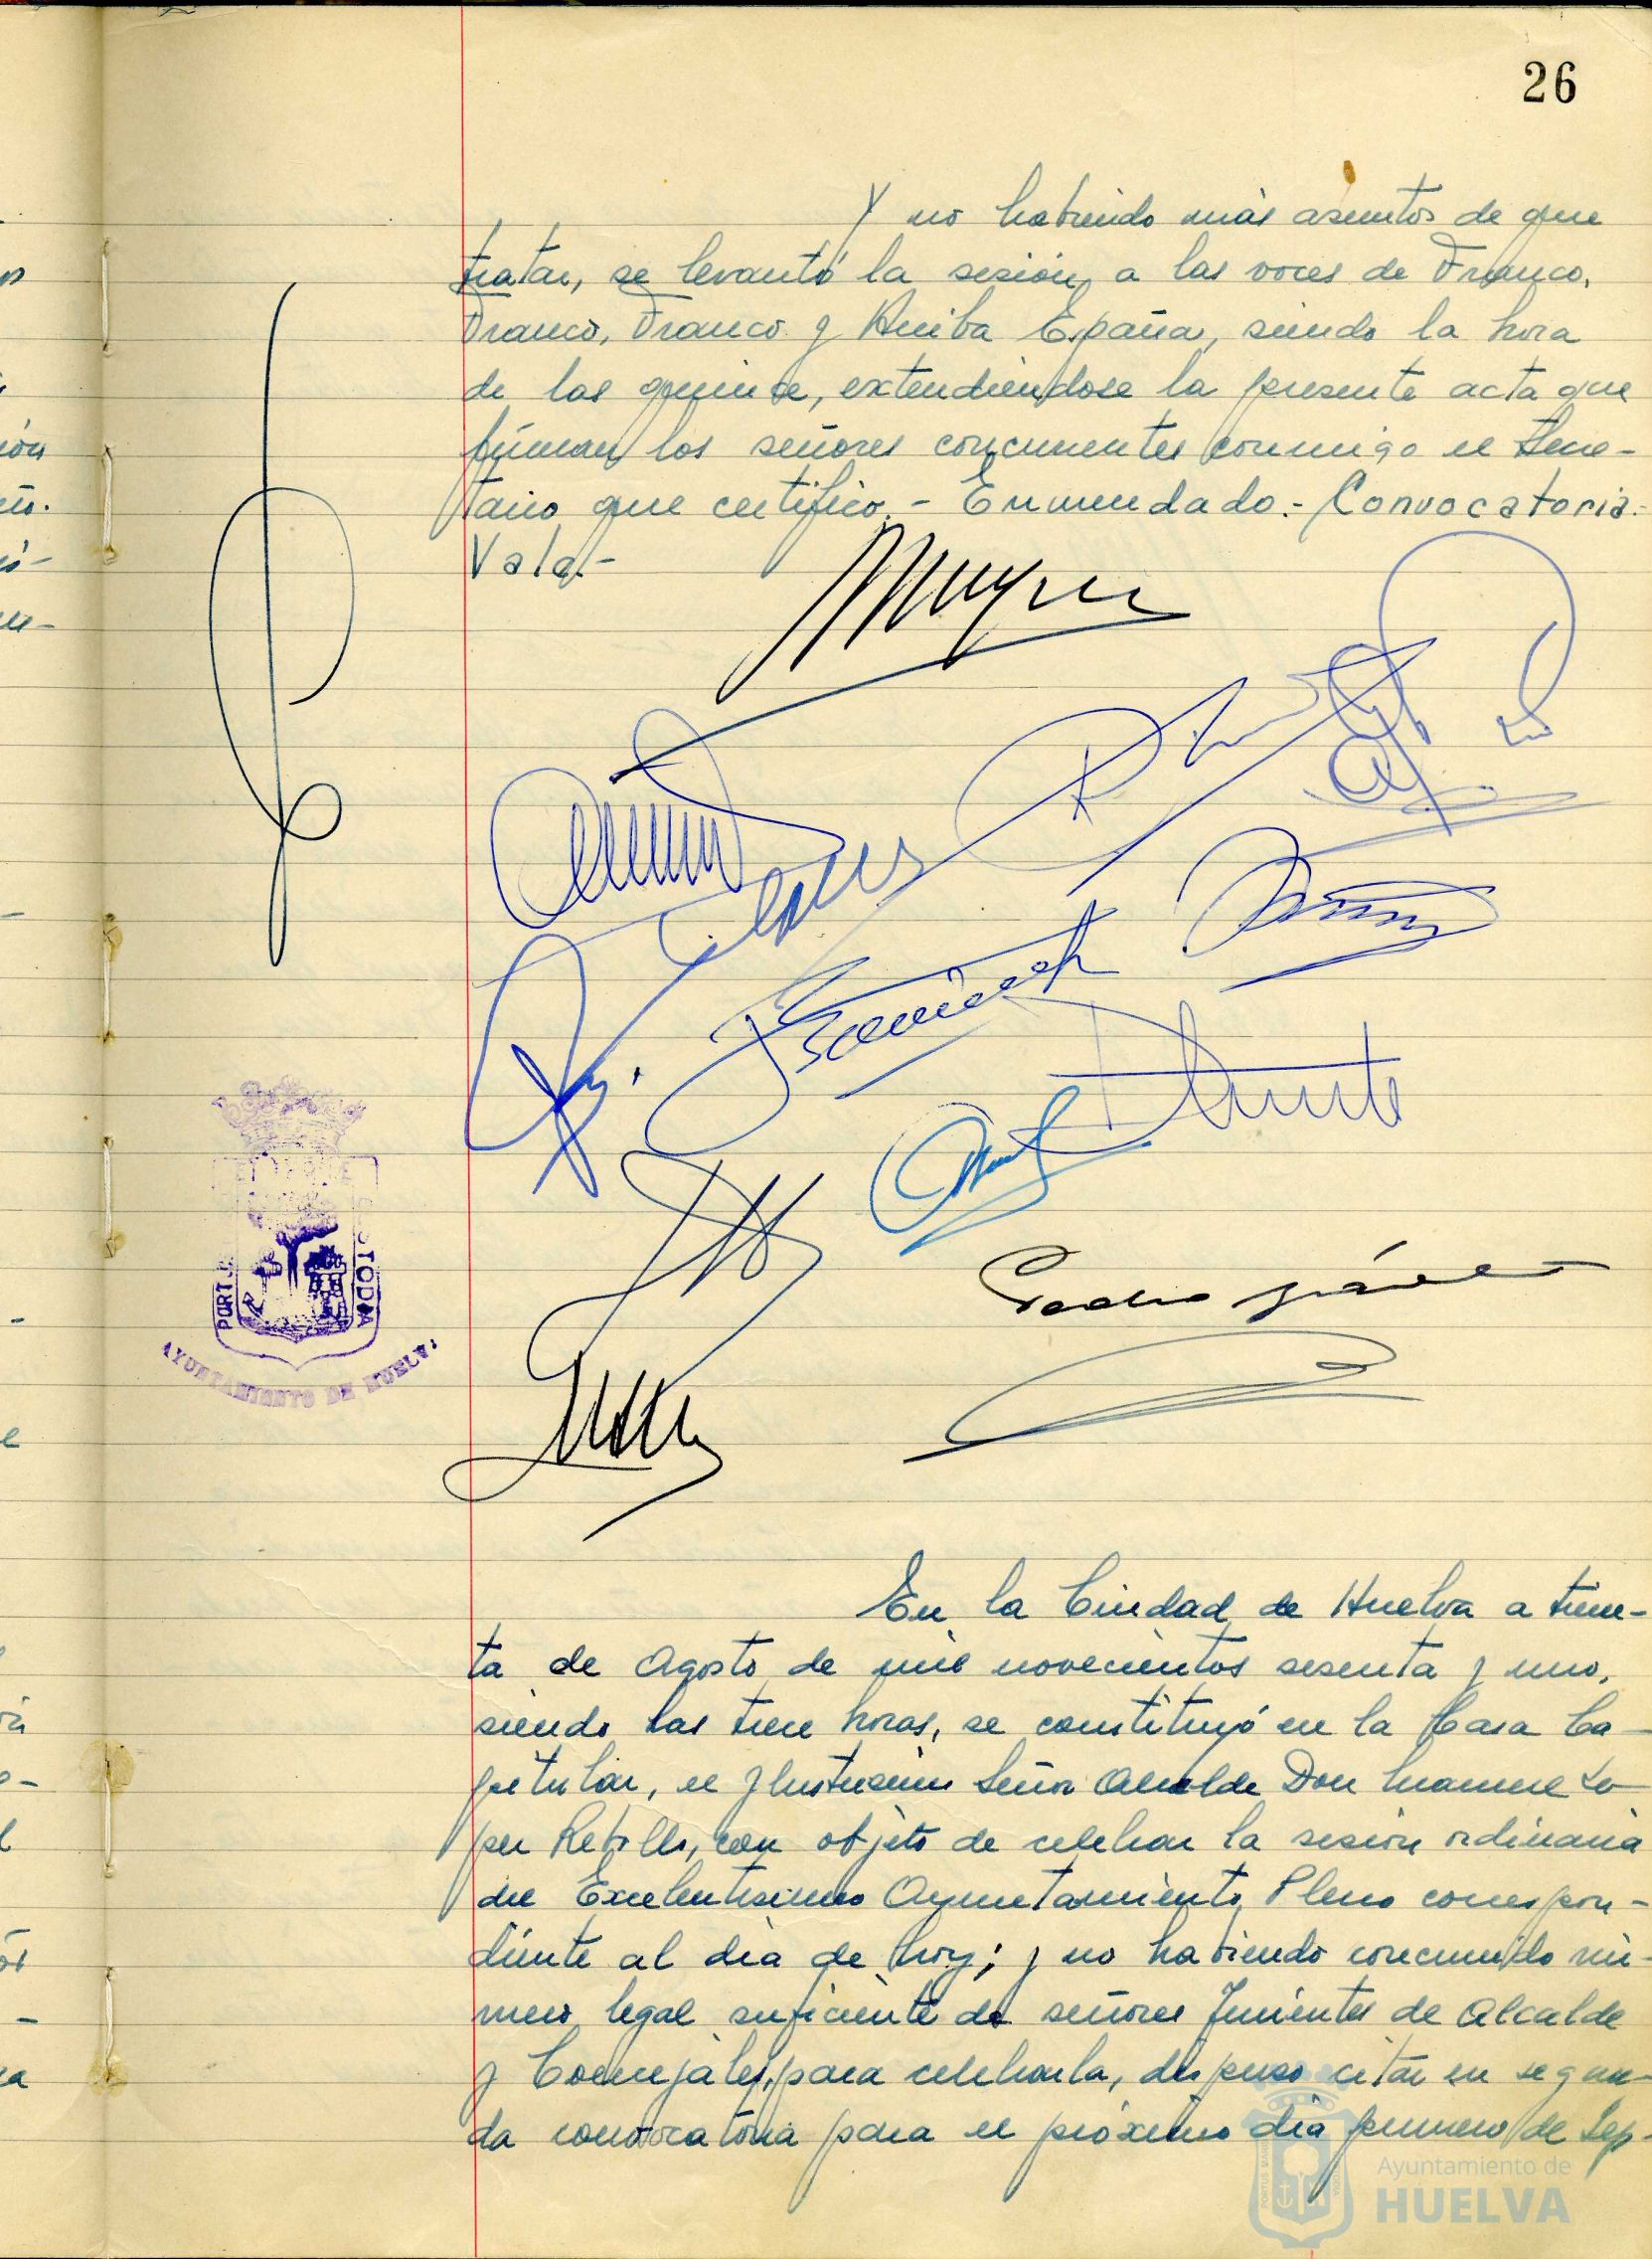 26
Y no habiendo más asuntos de que
tratar, se levantó la sesión, a las voces de Franco,
Franco, Franco y Arriba España, siendo la hora
de las quince, extendiéndose la presente acta que
firman los señores concurrentes conmigo el Secre-
tario que certifico.- Enmendado.- Convocatoria.-
Vale.-
PORTUS
CUSTODIA
AYUNTAMIENTO DE HUELVA
En la Ciudad de Huelva a trein-
ta de Agosto de mil novecientos sesenta y uno,
siendo las trece horas, se constituyó en la Casa Ca-
pitular, el Ilustrísimo Señor Alcalde Don Manuel Lo
pez Rebollo, con objeto de celebrar la sesión ordinaria
del Excelentísimo Ayuntamiento Pleno correspon-
diente al día de hoy; y no habiendo concurrido nú-
mero legal suficiente de señores Tenientes de Alcalde
y Concejales, para celebrarla, dispuso citar en segun-
da convocatoria para el próximo día primero de Sep-
Ayuntamiento de
HUELVA